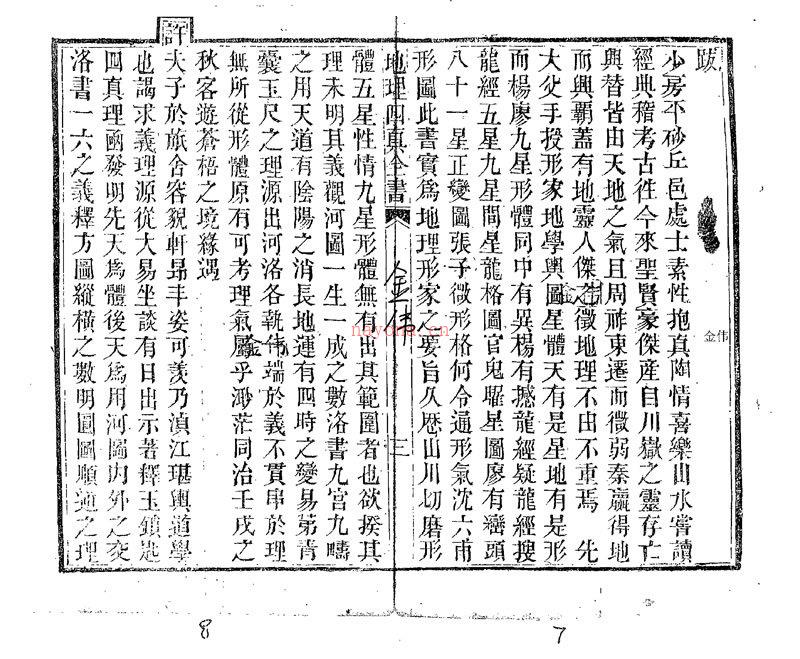 跋
少房平砂丘邑處士素性抱真陶情喜樂山水嘗讀
經典稽考古徃今來聖賢豪傑產自川嶽之靈存亡
興替皆由天地之氣且周祚東遷而微弱秦嬴得地
而興霸蓋有地靈人傑之徵地理不由不重焉 先
大父手授形家地學輿圖星體天有是星地有是形
而楊廖九星形體同中有異楊有撼龍經疑龍經搜
龍經五星九星間星龍格圖官鬼曜星圖廖有巒頭
八十一星正變圖張子微形格何令通形氣沈六甫
形圖此書實為地理形家之要旨久歷山川切磨形
地理四真全書 跋 三
體五星性情九星形體無有出其範圍者也欲揆其
理未明其義觀河圖一生一成之數洛書九宮九疇
之用天道有陰陽之消長地運有四時之變易第青
囊玉尺之理源出河洛各執 端於義不貫串於理
無所從形體原有可考理氣屬乎渺茫同治壬戌之
秋客遊蒼梧之境緣遇
許
夫子於旅舍容貌軒昻丰姿可羨乃滇江堪輿道學
也謁求義理源從大易坐談有日出示著釋玉鎖匙
四真理函發明先天為體後天為用河圖內外之交
洛書一六之義釋方圖縱橫之數明圓圖順逆之理
金伟
金伟
金伟
金伟
nayona.cn
8
7